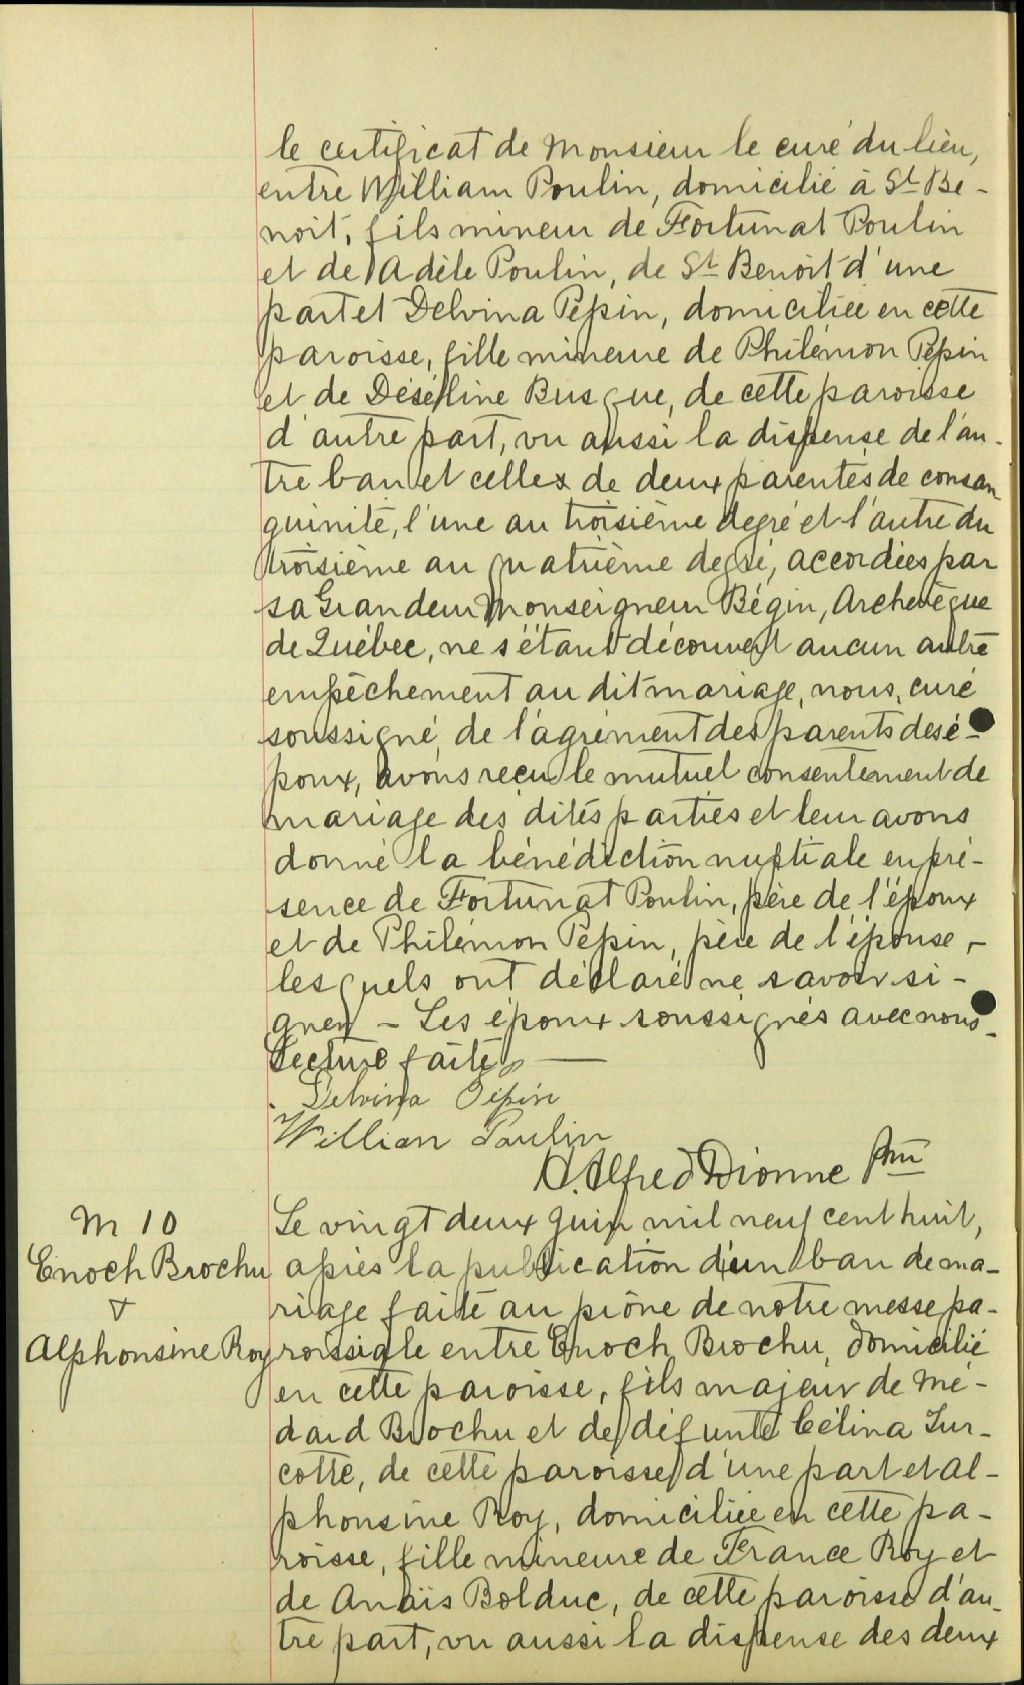 le certificat de Monsieur le curé du lieu,
entre William Poulin, domicilié à St Be-
noit, fils mineur de Fortunat Poulin
et de Adèle Poulin, de St Benoît d'une
part et Delvina Pépin, domiciliée en cette
paroisse, fille mineure de Philémon Pépin
et de Déséline Busque, de cette paroisse
d'autre part, vu aussi la dispense de l'au-
tre ban et celles de deux parentés de consan
guinité, l'une au troisième degré et l'autre du
troisième au quatrième degré, accordées par
sa Grandeur Monseigneur Bégin, Archevêque
de Québec, ne s'étant découvert aucun autre
empêchement au dit mariage, nous, curé
soussigné, de l'agrément des parents des é-
poux, avons reçu le mutuel consentement de
mariage des dites parties et leur avons
donné la bénédiction nuptiale en pré-
sence de Fortunat Poulin, père de l'époux
et de Philémon Pépin, père de l'épouse,-
lesquels ont déclaré ne savoir si-
gner - Les époux soussignés avec nous-
Lecture faite.
Delvina Pépin
William Poulin
Alfred Dionne Ptre
M 10
Enoch Brochu
&
Alphonsine Roy
Le vingt deux Juin mil neuf cent huit,
après la publication d'un ban de ma-
riage faite au prône de notre messe pa-
roissiale entre Enoch Brochu, domicilié
en cette paroisse, fils majeur de Mé-
dard Brochu et de défunte Célina Tur-
cotte, de cette paroisse d'une part et Al-
phonsine Roy, domiciliée en cette pa-
roisse, fille mineure de France Roy et
de Anaïs Bolduc, de cette paroisse d'au-
tre part, vu aussi la dispense des deux